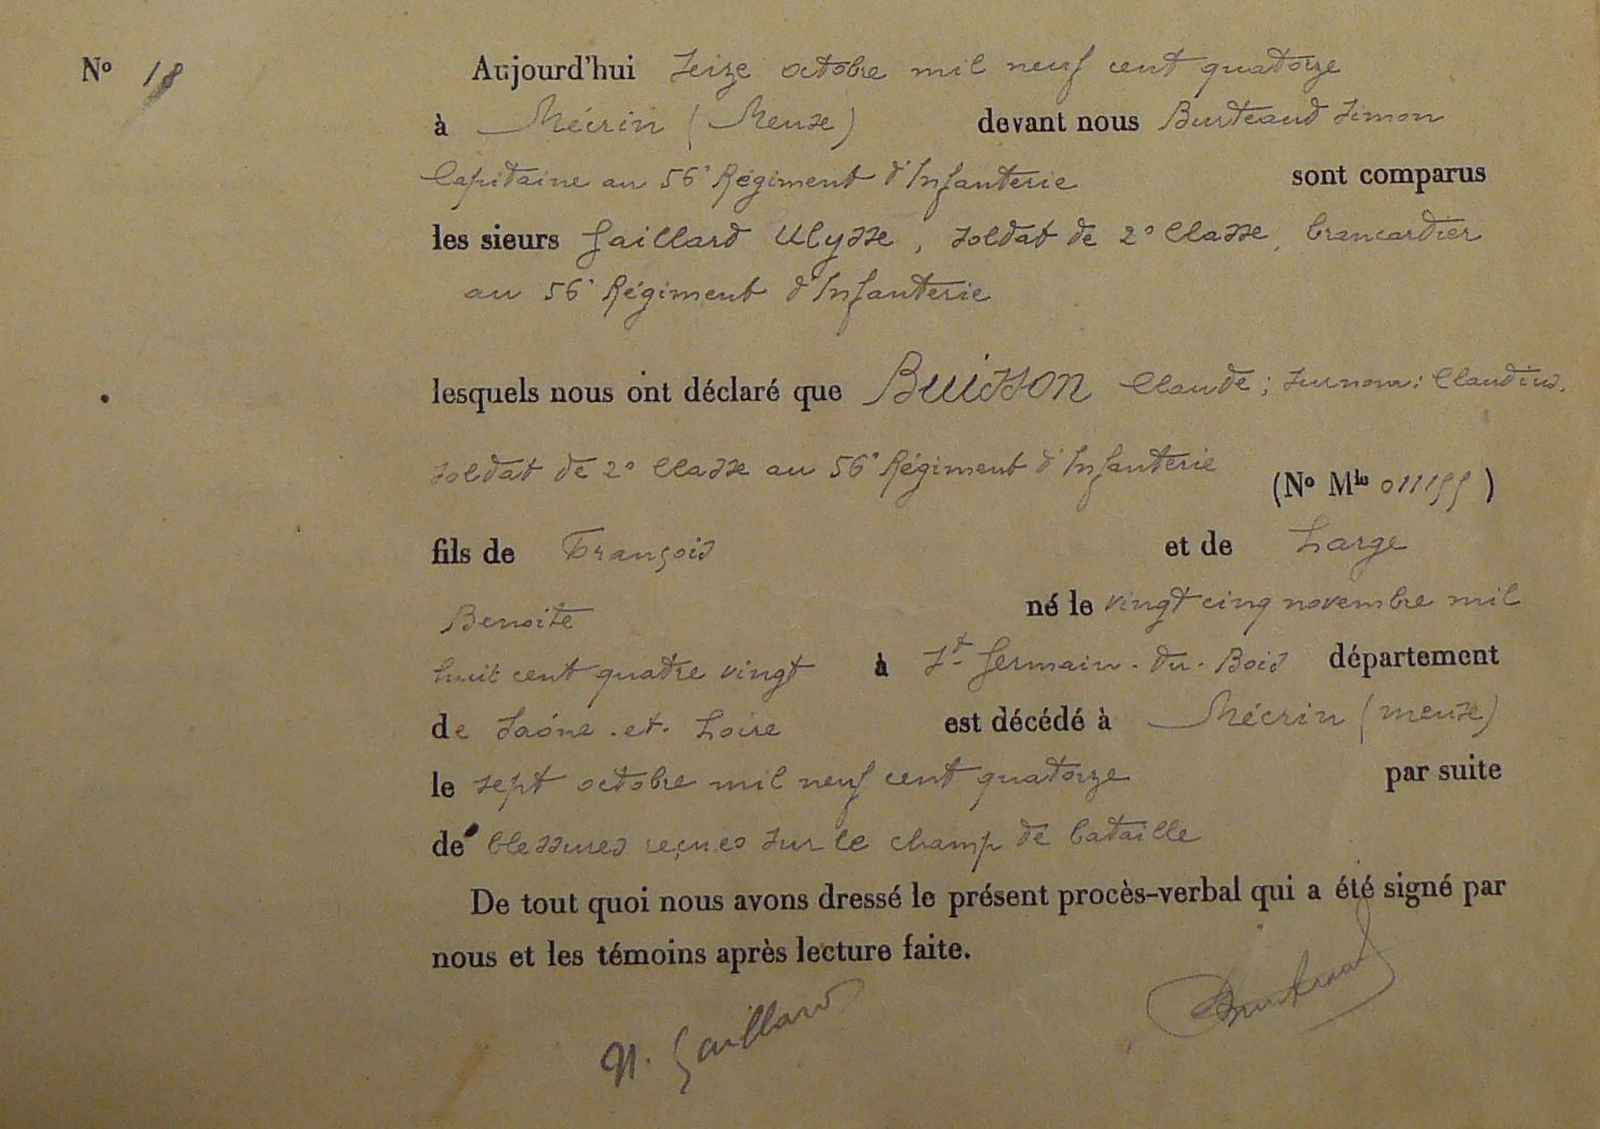 Nº 18
Aujourd'hui seize octobre mil neuf cent quatorze
à Mécrin (Meuse) devant nous Burteaud Simon
Capitaine au 56e Régiment d'Infanterie sont comparus
les sieurs Gaillard Ulysse, soldat de 2e classe, brancardier
au 56e Régiment d'Infanterie
lesquels nous ont déclaré que Buisson Claude; surnom: Claudius.
soldat de 2e classe au 56e Régiment d'Infanterie (Nº Mle 011199)
fils de François et de Large
Benoite né le vingt cinq novembre mil
huit cent quatre vingt à St-Germain-du-Bois département
de Saône-et-Loire est décédé à Mécrin (Meuse)
le sept octobre mil neuf cent quatorze par suite
de blessures reçues sur le champ de bataille
De tout quoi nous avons dressé le présent procès-verbal qui a été signé par
nous et les témoins après lecture faite.
U. Gaillard Burteaud